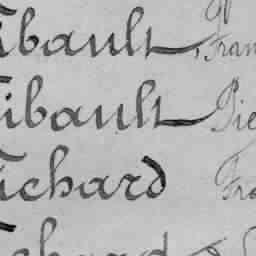 ibault, Fran
ibault Pie
ichard Fra